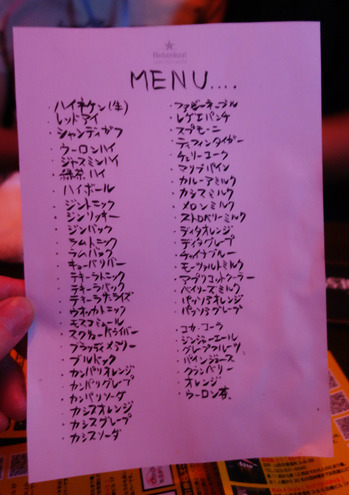 Heineken
MENU....
・ハイネケン(生)
・レッドアイ
・シャンディガフ
・ウーロンハイ
・ジャスミンハイ
・緑茶ハイ
・ハイボール
・ジントニック
・ジンリッキー
・ジンバック
・ラムトニック
・ラムバック
・キューバリバー
・テキーラトニック
・テキーラバック
・テキーラサンライズ
・ウォッカトニック
・モスコミュール
・スクリュードライバー
・ブラッディメアリー
・ブルドック
・カンパリオレンジ
・カンパリグレープ
・カンパリソーダ
・カシスオレンジ
・カシスグレープ
・カシスソーダ
・ファジーネーブル
・レゲエパンチ
・スプモーニ
・ティフィンタイガー
・チェリーコーク
・マリブパイン
・カルーアミルク
・カシスミルク
・メロンミルク
・ストロベリーミルク
・ディタオレンジ
・ディタグレープ
・チャイナブルー
・モーツァルトミルク
・アプリコットクーラー
・ベイリーズミルク
・パッソアオレンジ
・パッソアグレープ
・コカ・コーラ
・ジンジャーエール
・グレープフルーツ
・パインジュース
・クランベリー
・オレンジ
・ウーロン茶